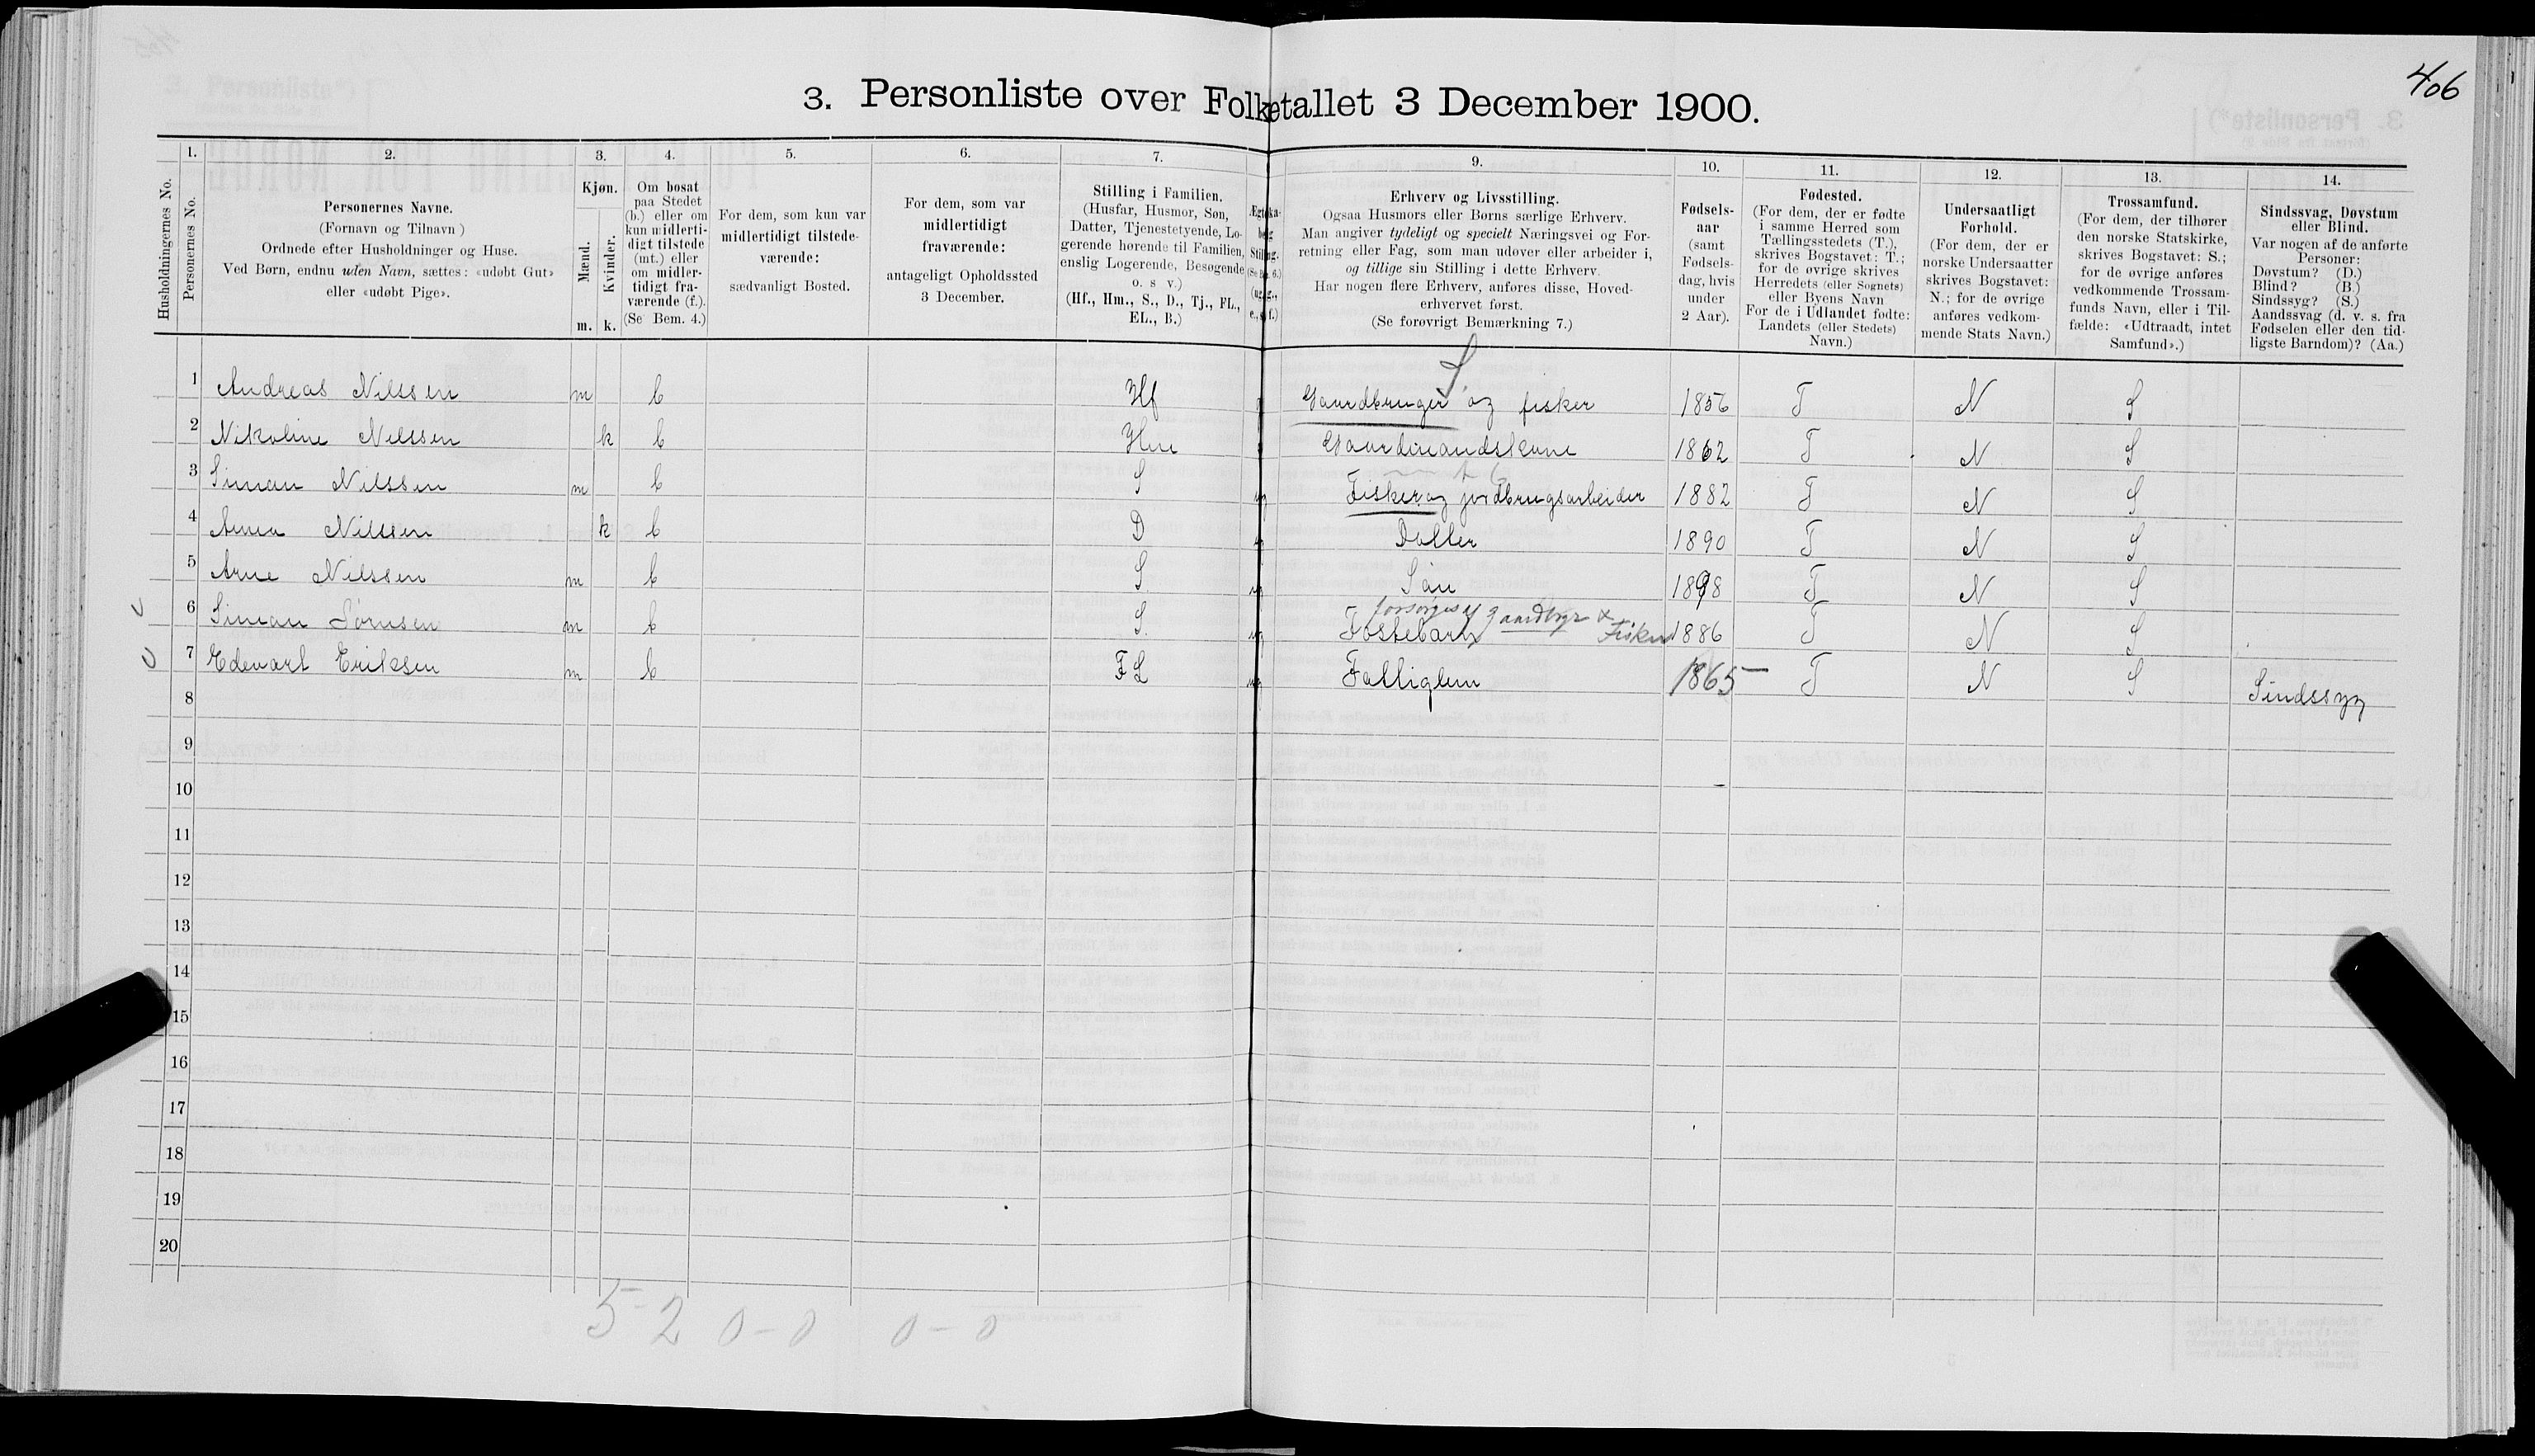 406
3. Personliste over Folketallet 3 December 1900.
1. 2. 3. 4. 5. 6. 7. 9. 10. 11. 12. 13. 14.
Husholdningernes No.
Personernes No.
Personernes Navne.
(Fornavn og Tilnavn )
Ordnede efter Husholdninger og Huse.
Ved Børn, endnu uden Navn, sættes: «udøbt Gut»
eller «udøbt Pige».
Kjøn.
Mænd.
Kvinder.
m. k.
Om bosat
paa Stedet
(b.) eller om
kun midlerti-
digt tilstede
(mt.) eller
om midler-
tidigt fra-
værende (f.).
(Se Bem. 4.)
For dem, som kun var
midlertidigt tilstede-
værende:
sædvanligt Bosted.
For dem, som var
midlertidigt
fraværende:
antageligt Opholdssted
3 December.
Stilling i Familien.
(Husfar, Husmor, Søn,
Datter, Tjenestetyende, Lo-
gerende hørende til Familien,
enslig Logerende, Besøgende
o. s v.)
(Hf., Hm., S., D., Tj., FL.,
EL., B.)
Erhverv og Livsstilling.
Ogsaa Husmors eller Børns særlige Erhverv.
Man angiver tydeligt og specielt Næringsvei og For-
retning eller Fag, som man udøver eller arbeider i,
og tillige sin Stilling i dette Erhverv.
Har nogen flere Erhverv, anføres disse, Hoved-
erhvervet først.
(Se forøvrigt Bemærkning 7.)
Fødsels-
aar
(samt
Fødsels-
dag, hvis
under
2 Aar).
Fødested.
(For dem, der er fødte
i samme Herred som
Tællingsstedets (T.),
skrives Bogstavet: T.;
for de øvrige skrives
Herredets (eller Sognets)
eller Byens Navn
For de i Udlandet fødte:
Landets (eller Stedets)
Navn.)
Undersaatligt
Forhold.
(For dem, der er
norske Undersaatter
skrives Bogstavet:
N.; for de øvrige
anføres vedkom-
mende Stats Navn.)
Trossamfund.
(For dem, der tilhører
den norske Statskirke,
skrives Bogstavet: S.;
for de øvrige anføres
vedkommende Trossam-
funds Navn, eller i Til-
fælde: «Udtraadt, intet
Samfund».)
Sindssvag, Døvstum
eller Blind.
Var nogen af de anførte
Personer:
Døvstum? (D.)
Blind? (B.)
Sindssyg? (S.)
Aandssvag (d. v. s. fra
Fødselen eller den tid-
ligste Barndom)? (Aa.)
S.
1 Andreas Nilssen m b Hf Gaardbruger og fisker 1856 T N S
2 Nikoline Nilssen k b Hm Gaardmandskone 1862 T N S
3 Siman Nilssen m b S Fisker og jordbrugsarbeider 1882 T N S
4 Anna Nilssen k b D Datter 1890 T N S
5 Arne Nilssen m b S. Søn 1898 T N S
forsørges af gaardbrgr & Fisker
6 Siman Jørnsen m b S. Fostebarn 1886 T N S
7 Edevart Eriksen m b FL Fattiglem 1865 T N S Sindssyg
8
9
10
11
12
13
14
15
16
17
18
19
20
5-2 0-0 0-0